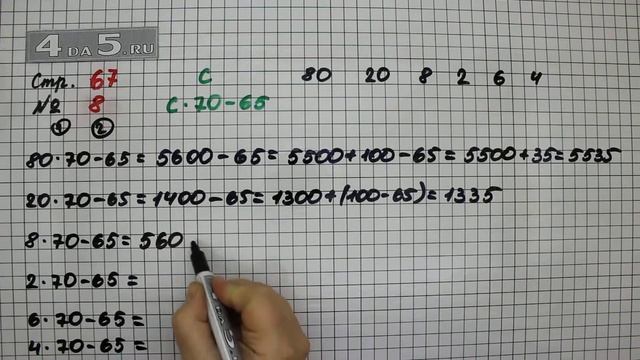 4DA5.RU
Стр. 67 С 80 20 8 2 6 4
№ 8 С·70-65
① ②
80·70-65=5600-65=5500+100-65=5500+35=5535
20·70-65=1400-65=1300+(100-65)=1335
8·70-65=560
2·70-65=
6·70-65=
4·70-65=